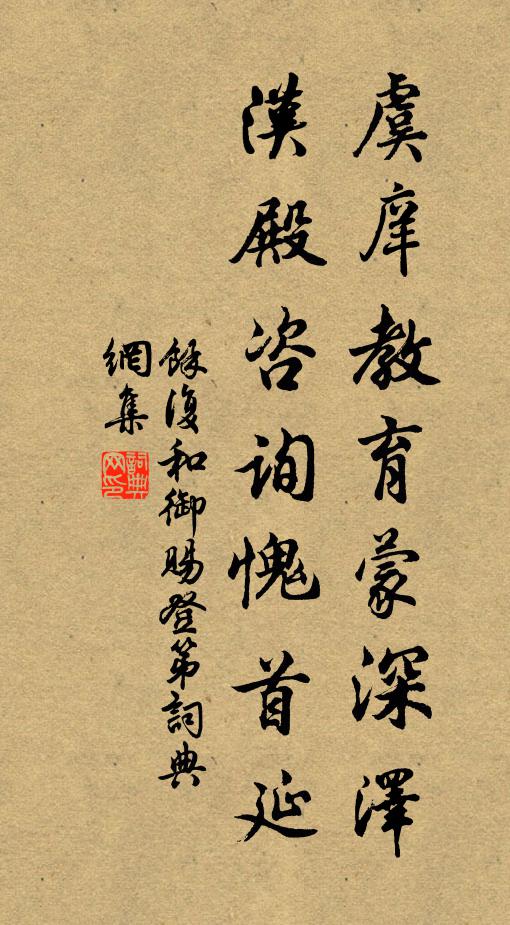 虞庠教育蒙深澤
漢殿咨詢愧首延
餘復和御賜登第詞典
網集
詞典
网印